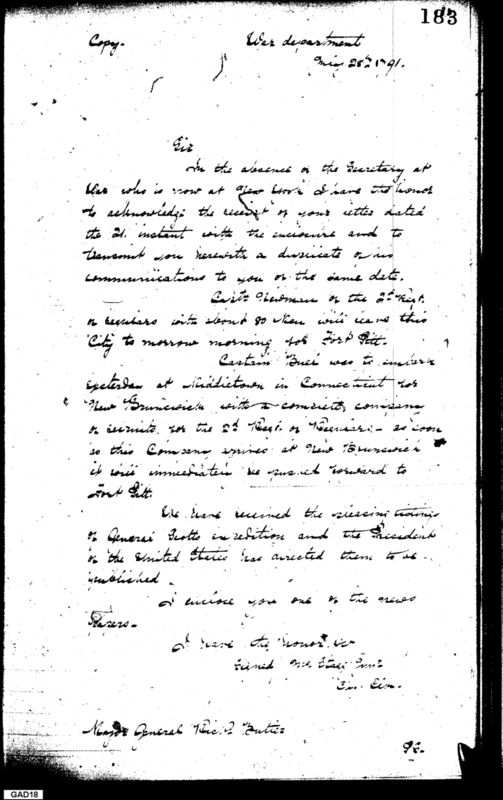 183
Copy.
War department
28th 1791.
Sir
In the absence of the Secretary at
War who is now at New York I have the honor
to acknowledge the receipt of your letter dated
the 21. instant with the enclosure and to
transmit you herewith a duplicate of
communications to you of the same date.
Captn Newman of the 2d Regt.
of regulars with about 80 Men will leave this
City to morrow morning for Fort Pitt.
Captain Buel was to embark
yesterday at Middletown in Connecticut for
New Brunswick with a complete company
of recruits for the 2d Regt of Regulars - as soon
as this Company arrives at New Brunswick
it will immediately be pushed forward to
Fort Pitt.
We have received the pleasing tidings
of General Scotts expedition and the President
of the United States has directed them to be
published.
I enclose you one of the news
Papers -
I have the honor &c
Signed
Major General Richd Butler
GAD18